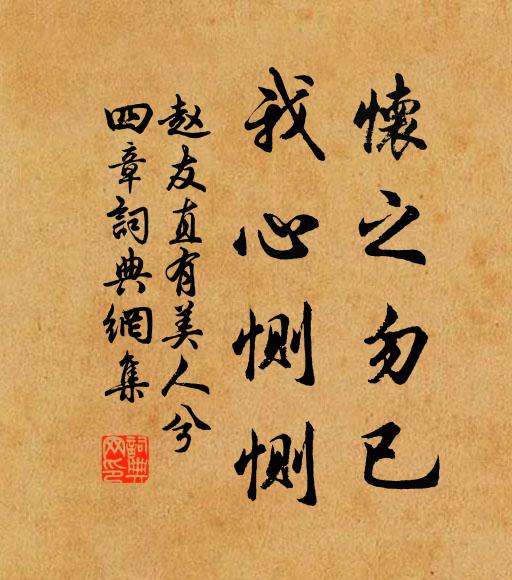 懷之勿已
我心惻惻
赵友直有美人兮
四章詞典網集
詞典
网印